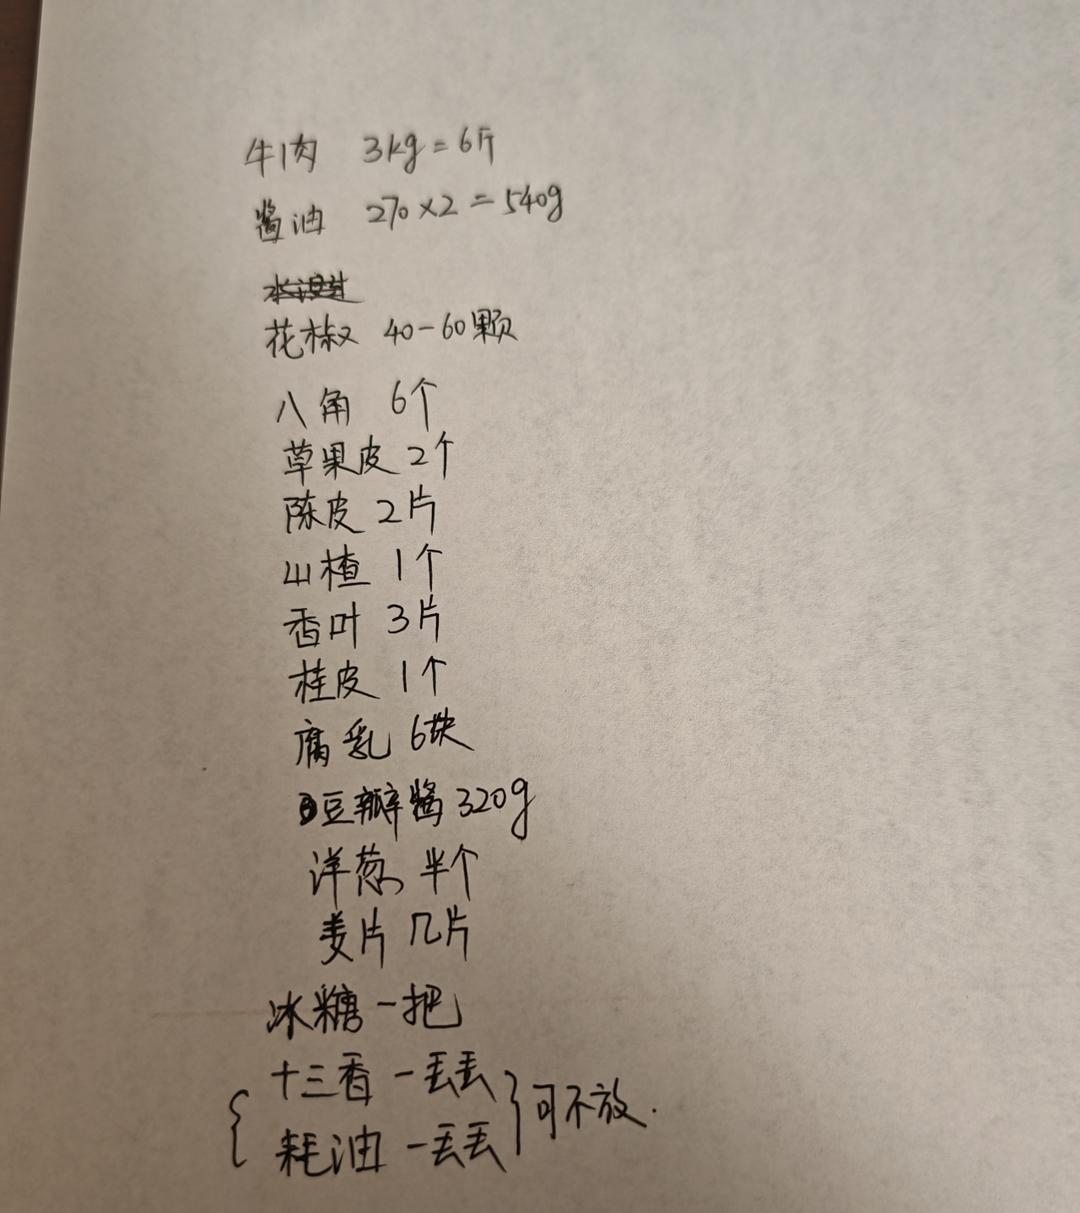 牛肉 3kg = 6斤
酱油 270×2 = 540g
花椒 40-60颗
八角 6个
草果皮 2个
陈皮 2片
山楂 1个
香叶 3片
桂皮 1个
腐乳 6块
豆瓣酱 320g
洋葱 半个
姜片 几片
冰糖 一把
十三香 一丢丢
耗油 一丢丢
可不放.